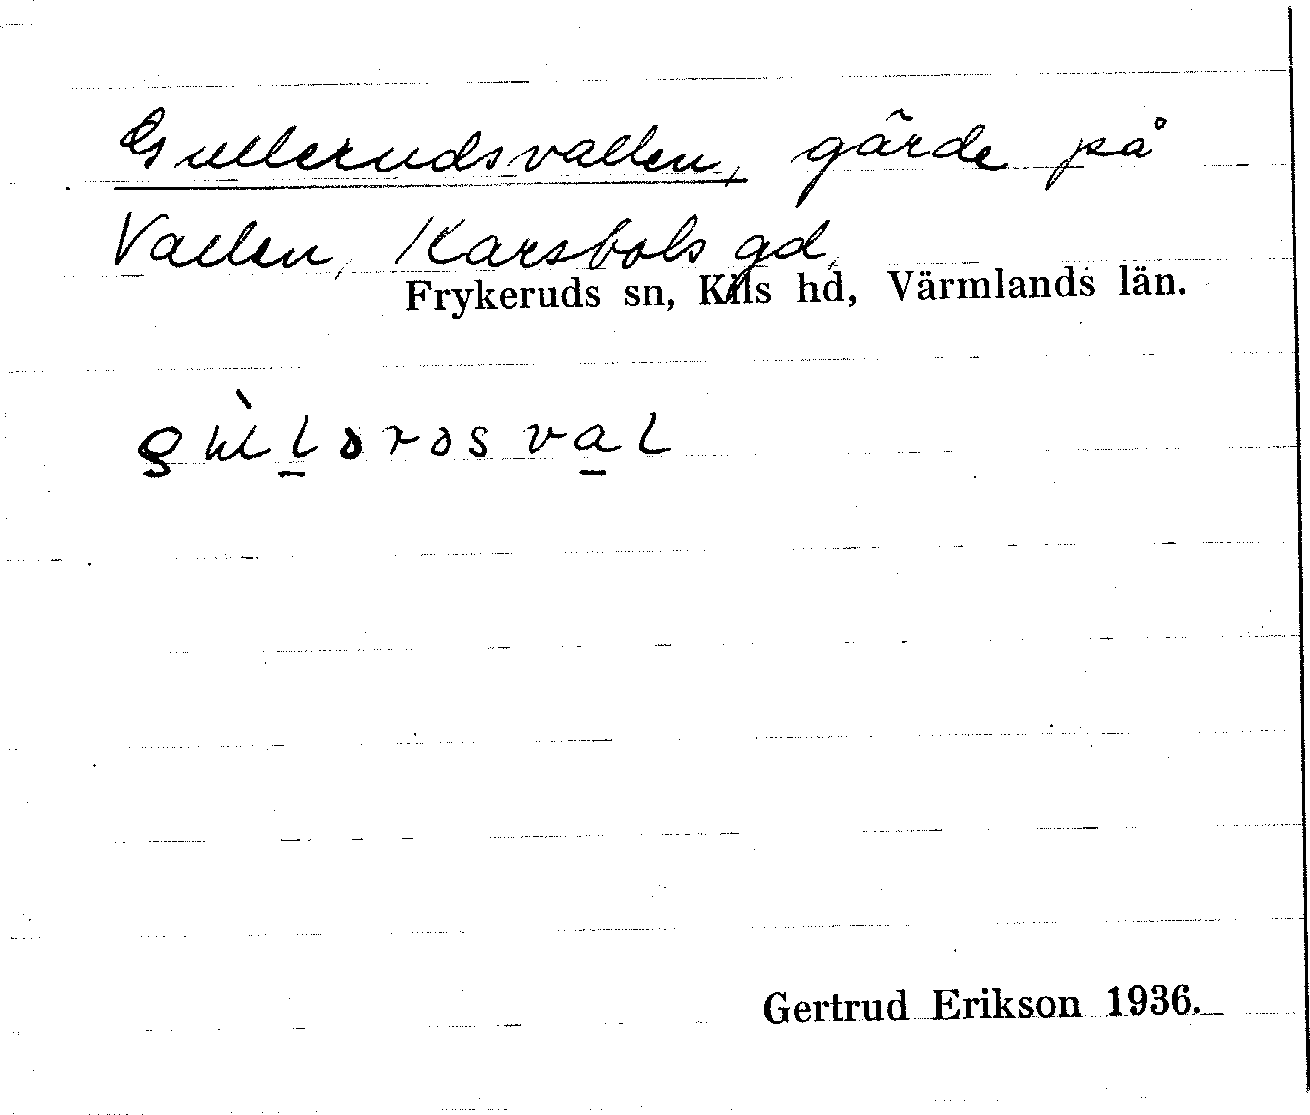 Gullerudsvallen, gärde på
Vallen, Karsbols gd,
Frykeruds sn, Kils hd, Värmlands län.
gùl̠ərəsva̠l
Gertrud Erikson 1936.